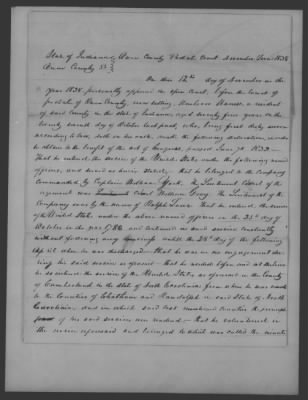 State of Indiana, Owen County Probate Court November Term 1838
Owen County SS
On this 12th day of November in the
year 1838 personally appeared in open Court, before the Court of
probate of Owen County, now sitting, a resident
of said County in the State of Indiana, aged seventy four years on the
day of October last past, who, being first duly sworn
according to law, doth on his oath, make the following declaration, in order
to obtain the benefit of the act of Congress, passed June 7th 1832.
That he entered the service of the United States under the following named
officers, and served as herein stated, that he belonged to the Company
commanded by Captain William York. The Lieutenant Colonel of the
regiment was William the Lieutenant of the
Company was by the name of Ralph That he entered the service
of the United States, under the above named officers on the day of
October in the year 1780, and continued in said service constantly
without following any until the 28th day of the following
when he was discharged, That he was in no engagement du-
ring his said service as aforesaid That he resided before and at the time
he so entered the service of the United States, as aforesaid in the County
of Cumberland in the State of North Carolina from whence he was marched
to the Counties of Chatham and Randolph in said State of North
Carolina, and in which said last mentioned Counties the principal
part of his said services was rendered — that he volunteered in
the service aforesaid and belonged to what was called the